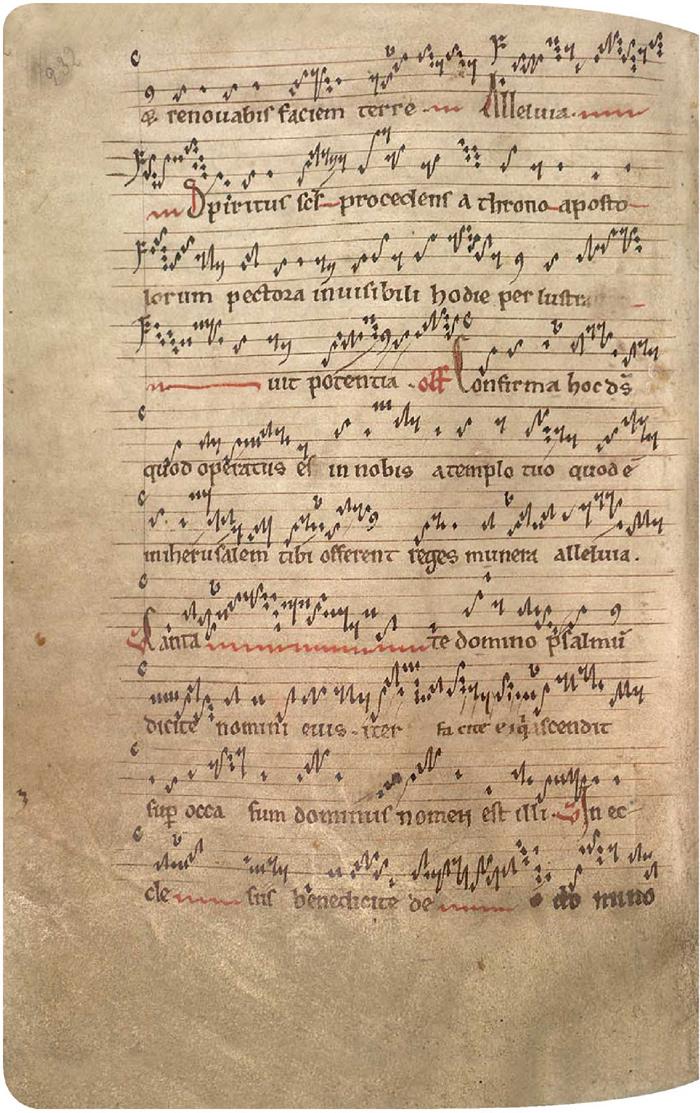 232
& renouabis faciem terre. Alleluia.
Spiritus scs procedens a throno aposto
lorum pectora inuisibili hodie per lustra
uit potentia. off Confirma hoc ds
quod operatus es in nobis a templo tuo quod ē
inherusalem tibi offerent reges munera alleluia.
Canta te domino psalmū
dicite nomini eius. iter facite ei q ascendit
sup occa sum dominus nomen est illi. In ec
cle siis benedicite de o do mino